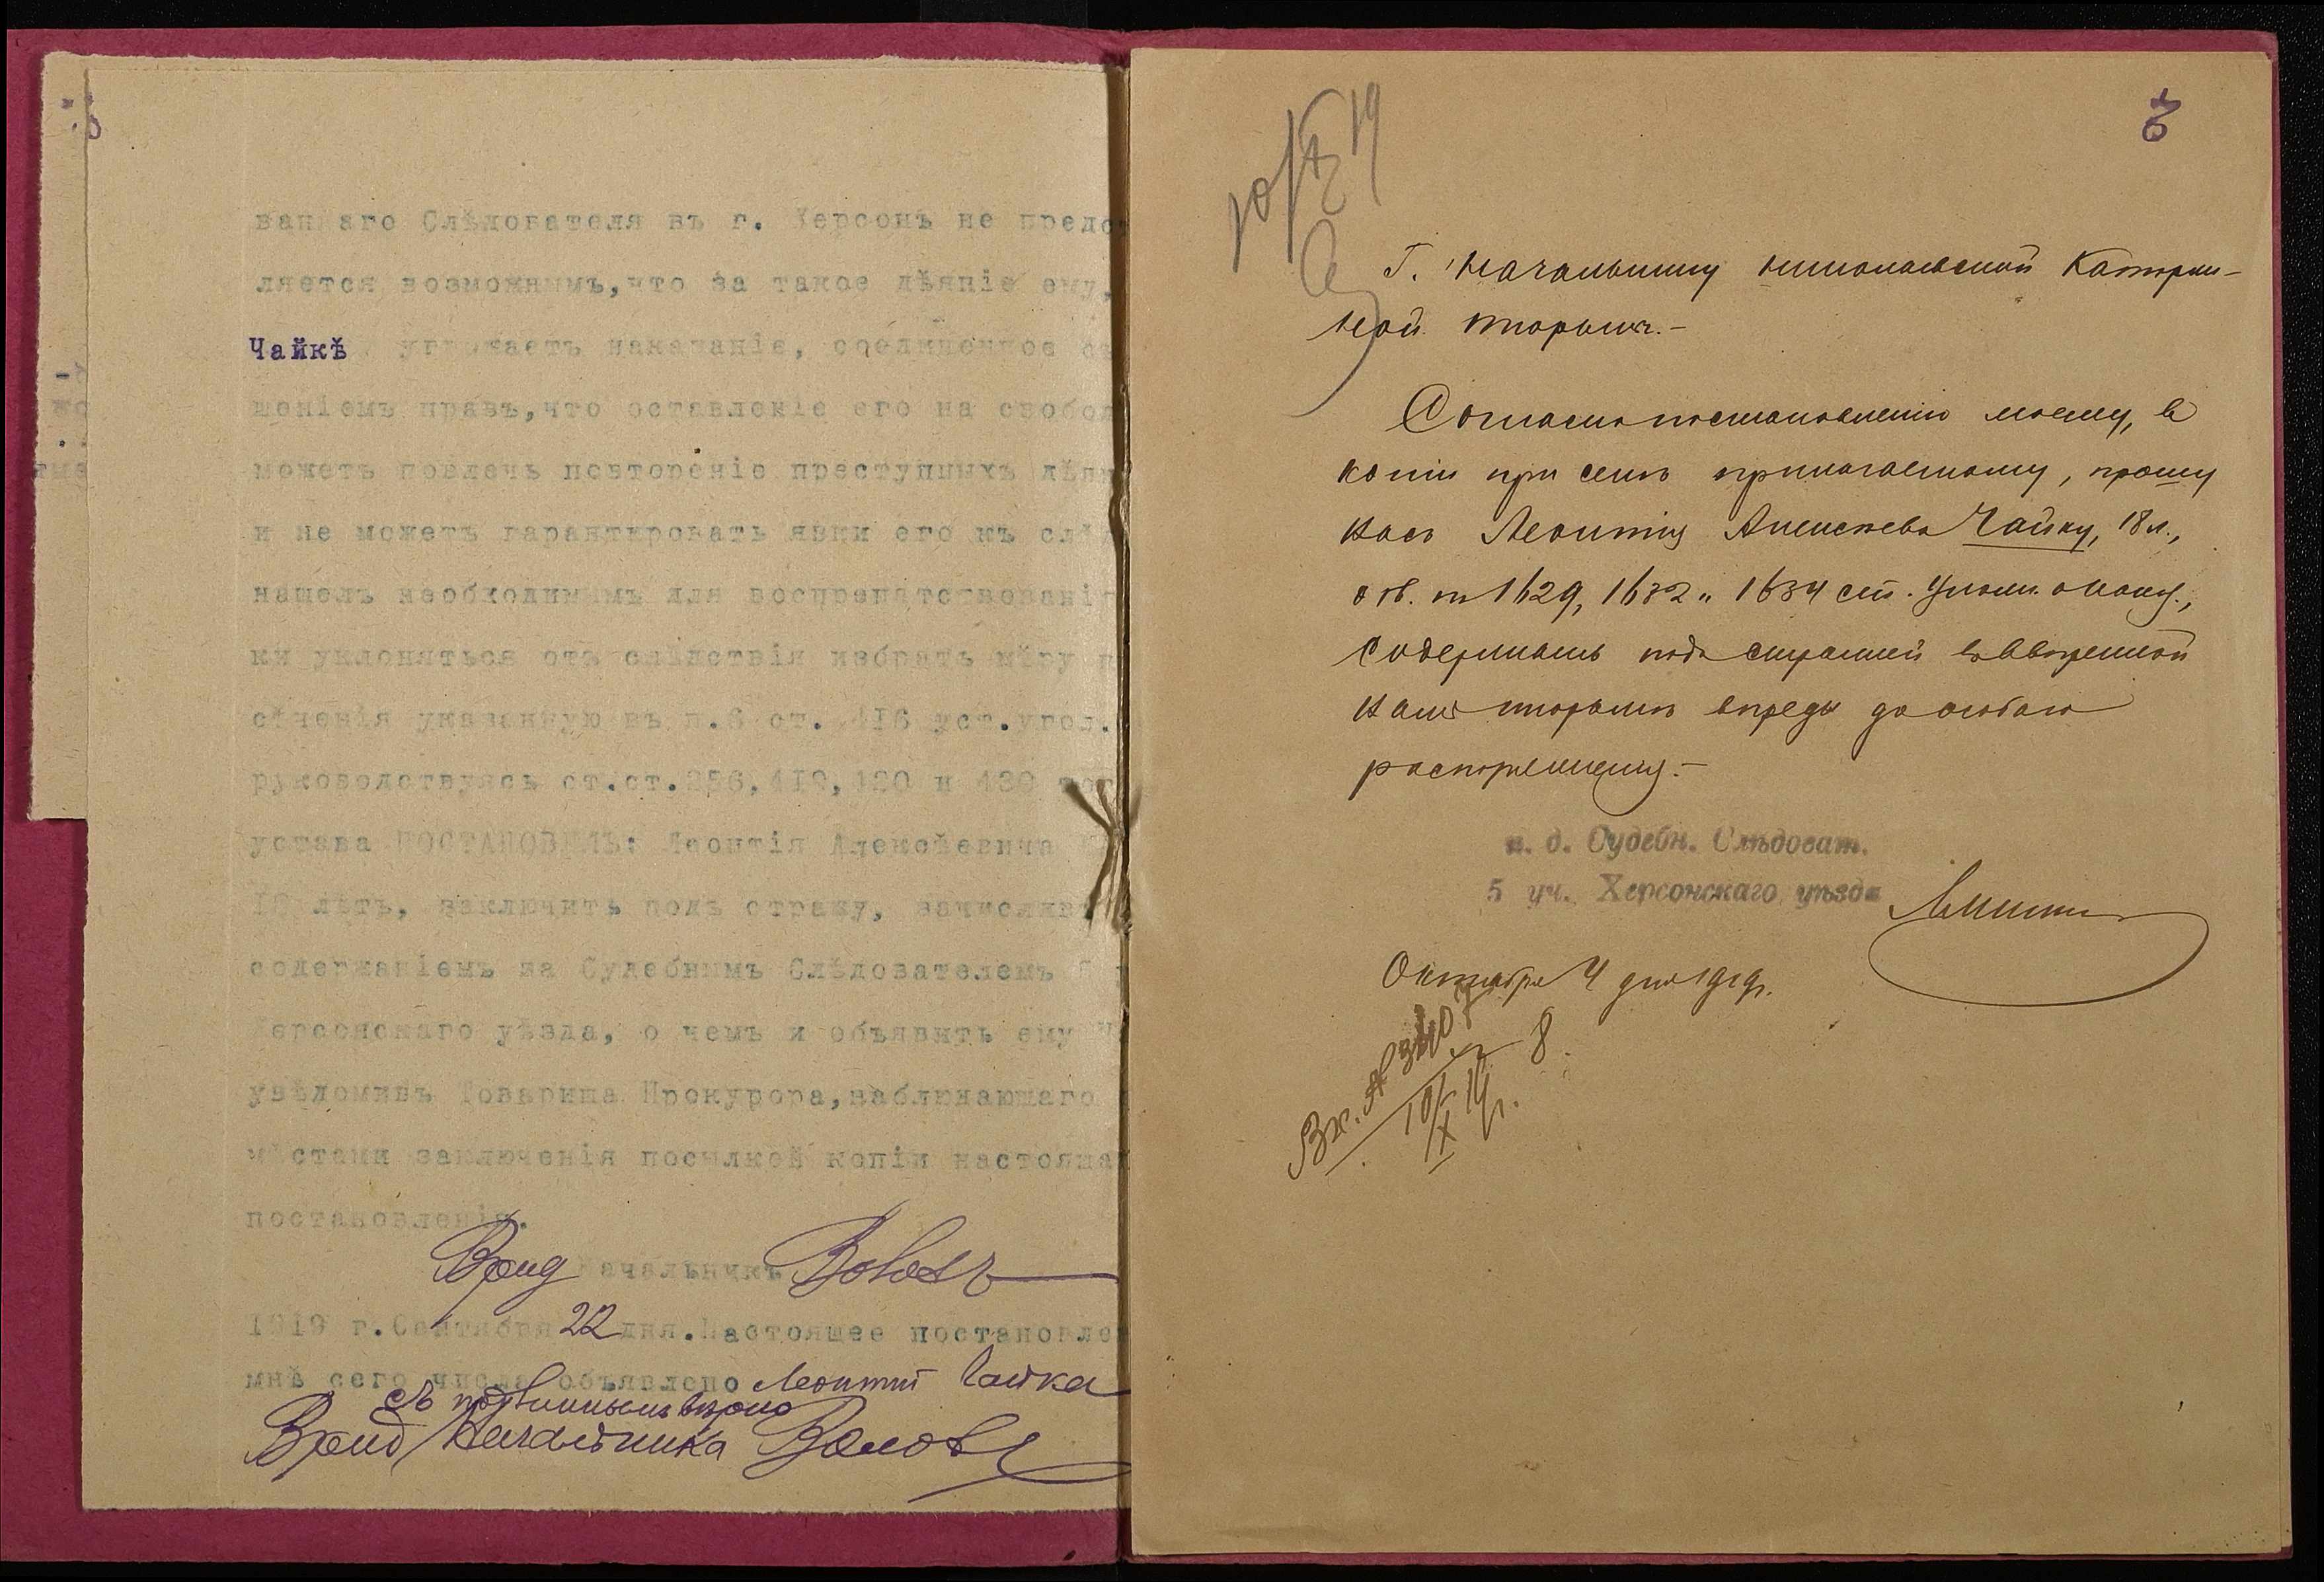 ван аго Слѣдователя въ г. Херсонъ не предст
ляется возможнымъ,что за такое дѣяніе ему,
Чайкѣ угрожаетъ наказаніе, соединенное съ
шеніемъ правъ,что оставленіе его на свобод
можетъ повлечь повтореніе преступныхъ дѣян
и не можетъ гарантировать явки его къ слѣд
нашелъ необходимымъ для воспрепятствованія
ки уклоняться отъ слѣдствія избрать мѣру п
сѣченія указанную въ п.6 ст. 416 уст.угол.
руководствуясь ст.ст.256,419,420 и 430 тог
устава ПОСТАНОВИЛЪ: Леонтія Алексѣевича
18 лѣтъ, заключить подъ стражу, зачислив
содержаніемъ за Судебнымъ Слѣдователемъ 5 у
Херсонскаго уѣзда, о чемъ и объявить ему Ч
увѣдомивъ Товарища Прокурора,наблюдающаго
мѣстами заключенія посылкой копіи настоящаг
постановленія.
Врид Начальникъ
1919 г.Сентября 22 дня.Настоящее постановле
мнѣ сего числа объявлено Леонтий Чайка
съ подлиннымъ вѣрно
Врид Начальника
3
10/X 19
Г. Начальнику Николаевской Каторж-
ной тюрьмы.-
Согласно постановленію моему, въ
копіи при семъ прилагаемому, прошу
Васъ Леонтія Алексѣева Чайку, 18 л.,
обв. по 1629, 1632 и 1634 ст. Улож. о наказ.,
содержать подъ стражей въ ввѣренной
Вамъ тюрьмѣ впредь до особаго
распоряженія.-
и. д. Судебн. Слѣдоват.
5 уч. Херсонскаго уѣзда
Октября 4 дня 1919 г.
8
Вх. № 3407
10/X 19 г.